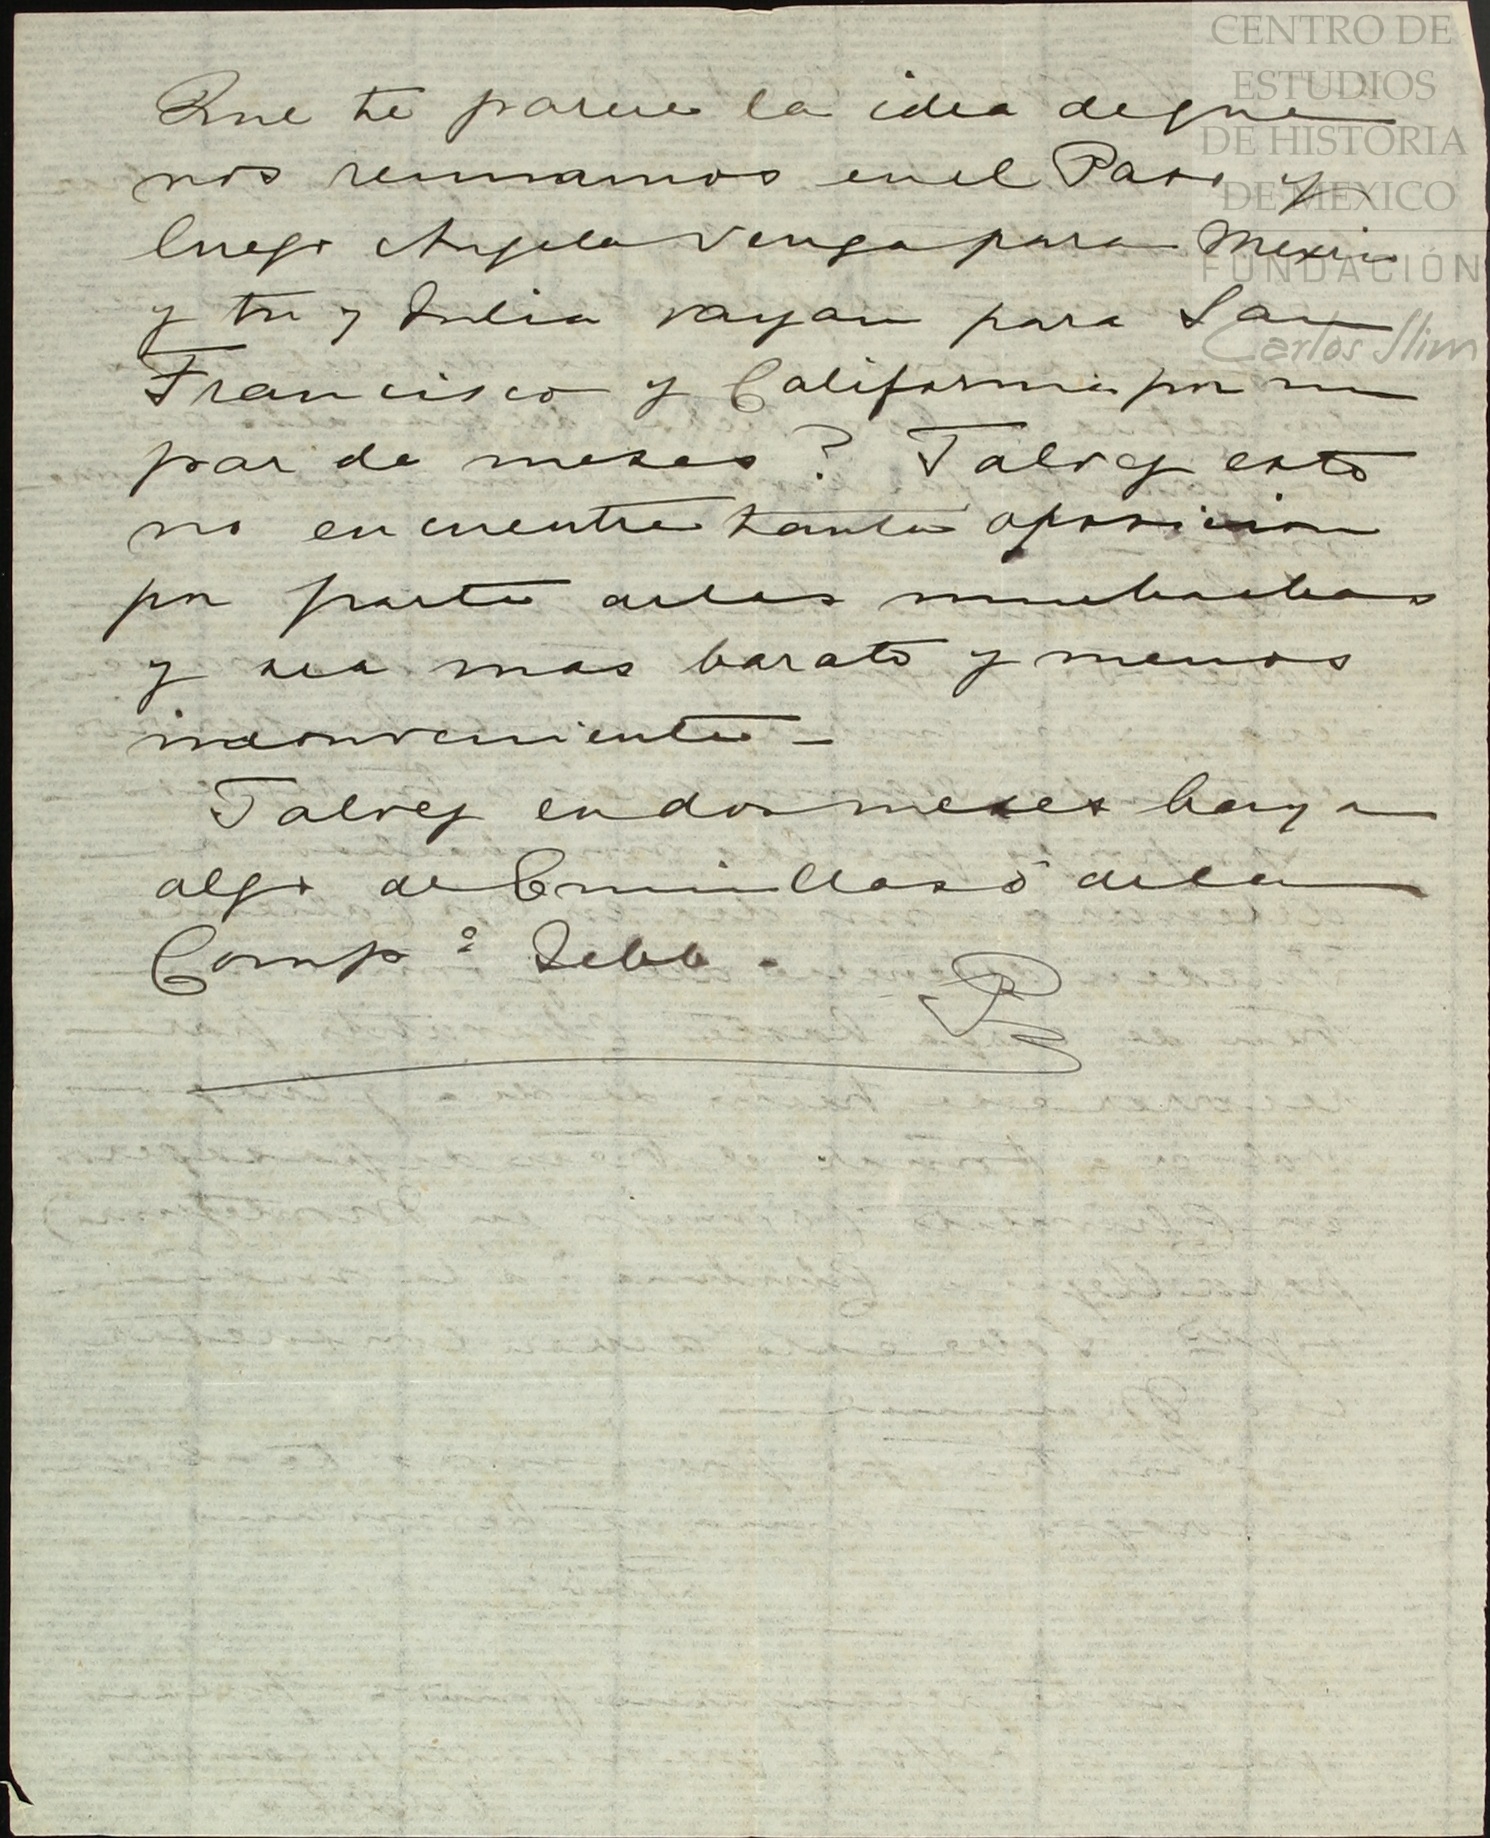 CENTRO DE
ESTUDIOS
DE HISTORIA
DE MEXICO
FUNDACIÓN
Carlos Slim
Que te parece la idea de que
nos reunamos en el Paso y
luego Angela venga para Mexico
y tu y Julia vayan para San
Francisco y California por un
par de meses? Talvez esto
no encuentre tanta oposicion
por parte de las muchachas
y sea mas barato y menos
inconveniente –
Talvez en dos meses haya
algo de ó de la
Comp.ª Jebb.